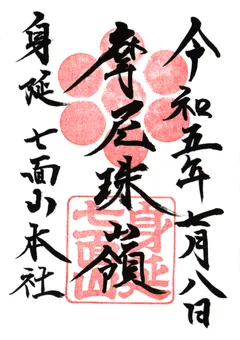 令和五年七月八日
摩尼珠嶺
身延 七面山本社
身延
七面山